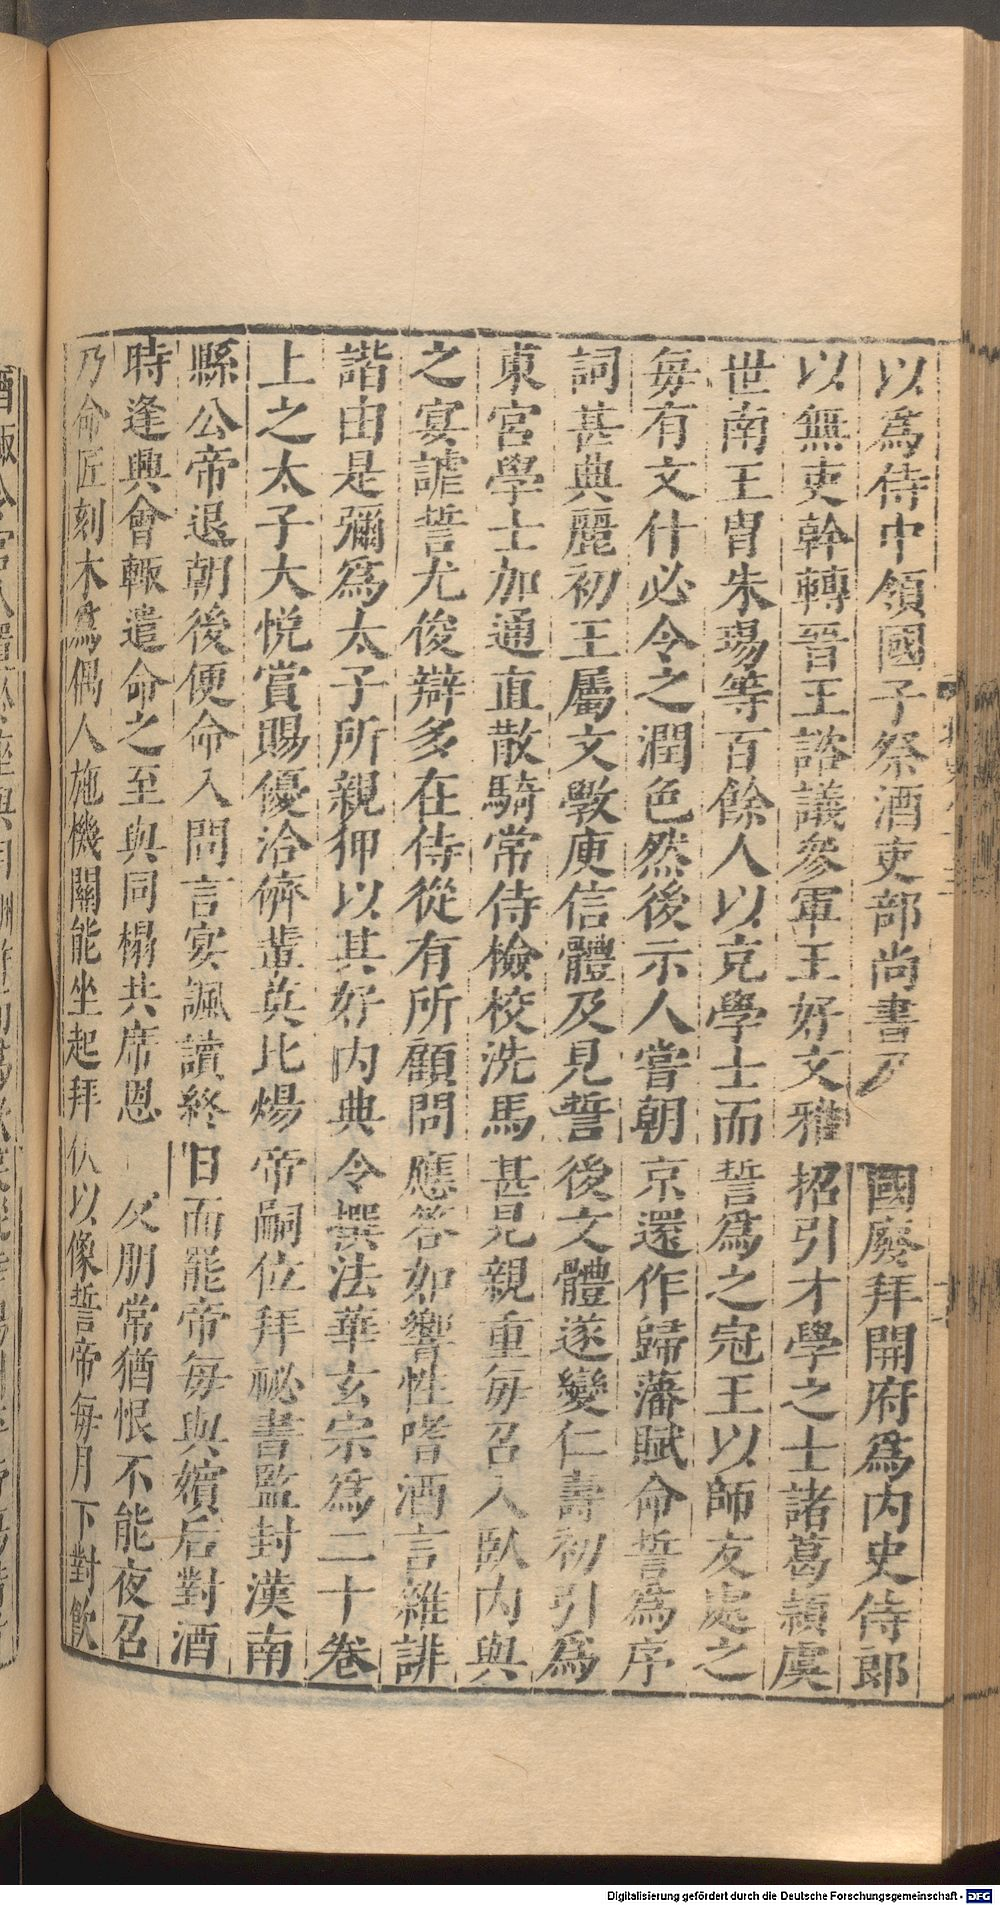 以爲侍中領國子祭酒吏部尚書及國廢拜開府爲內史侍郎
以無吏幹轉晉王諮議參軍王好文雅招引才學之士諸葛潁虞
世南王冑朱瑒等百餘人以充學士而䛒爲之冠王以師友處之
每有文什必令之潤色然後示人嘗朝京還作歸藩賦命䛒爲序
詞甚典麗初王屬文斆庾信體及見䛒後文體遂變仁壽初引爲
東宮學士加通直散騎常侍檢校洗馬甚見親重每召入臥內與
之宴謔䛒尤俊辯多在侍從有所顧問應答如響性嗜酒言雜誹
諧由是彌爲太子所親狎以其好內典令撰法華玄宗爲二十卷
上之太子大悅賞賜優洽儕輩莫比煬帝嗣位拜祕書監封漢南
縣公帝退朝後便命入問言宴諷讀終日而罷帝每與嬪后對酒
時逢興會輒遣命之至與同榻共席恩 友朋常猶恨不能夜召
乃命匠刻木爲偶人施機關能坐起拜伏以像䛒帝每月下對飲
Digitalisierung gefördert durch die Deutsche Forschungsgemeinschaft - DFG